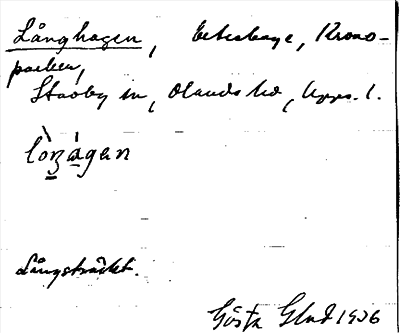 Långhagen, beteshage, Krono-
parken,
Stavby sn, Olands hd, Upps. l.
lòŋágen
Långsträckt.
Gösta Glad 1936